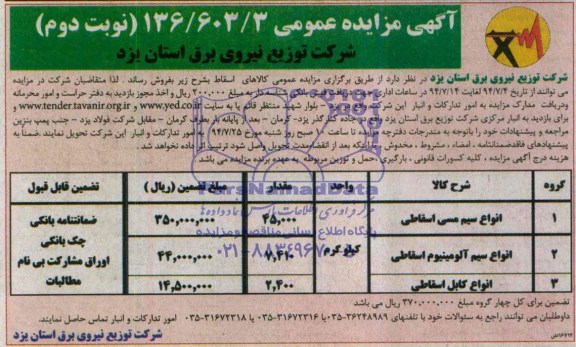 آگهی مزایده عمومی ۱۳۶/۶۰۳/۳ (نوبت دوم)
شرکت توزیع نیروی برق استان یزد
شرکت توزیع نیروی برق استان یزد در نظر دارد از طریق برگزاری مزایده عمومی کالاهای اسقاط بشرح زیر بفروش رساند . لذا متقاضیان شرکت در مزایده
می توانند از تاریخ ۹۴/۷/۴ لغایت ۹۴/۷/۱۴ در ساعات اداری بانکی شناسه دار به مبلغ ۲۰۰,۰۰۰ ریال و اخذ مجوز بازدید به دفتر حراست و امور محرمانه
ودریافت مدارک مزایده به امور تدارکات و انبار این شرکت بلوار شهید منتظر قائم یا به سایت www.yed.co.ir و www.tender.tavanir.org.ir
برای بازدید به انبار مرکزی شرکت توزیع برق استان یزد واقع جاده کنار گذر یزد- کرمان - بعد از پایانه بار بطرف کرمان - مقابل شرکت فولاد یزد - جنب پمپ بنزین
مراجعه و پیشنهادات خود را باتوجه به مندرجات دفترچه مزایده تا ساعت صبح روز شنبه مورخ ۹۴/۷/۲۵ به امور تدارکات و انبار این شرکت تحویل نمایند .ضمناً به
پیشنهادهای فاقدضمانتنامه ، امضاء ، مشروط ، مخدوش و بعد از انقضاءمدت تحویل واصل شود ترتیب اثر داده نخواهد شد.
هزینه درج آگهی مزایده ، کلیه کسورات قانونی ، بارگیری ،حمل و توزین مربوطه به عهده برنده مزایده می باشد
گروه شرح کالا واحد مقدار مبلغ تضمین (ریال) تضمین قابل قبول
۱ انواع سیم مسی اسقاطی کیلوگرم ۲۵,۰۰۰ ۳۵۰,۰۰۰,۰۰۰ ضمانتنامه بانکی
چک بانکی
۲ انواع سیم آلومینیوم اسقاطی ۴۴,۰۰۰,۰۰۰ اوراق مشارکت بی نام
مطالبات
۳ انواع کابل اسقاطی ۲,۴۰۰ ۱۴,۵۰۰,۰۰۰
تضمین برای کل چهار گروه مبلغ ۳۷۰,۰۰۰,۰۰۰ ریال می باشد
داوطلبان می توانند راجع به سئوالات خود با تلفنهای ۳۶۲۴۸۹۸۹-۰۳۵ یا ۳۱۶۷۲۳۱۶-۰۳۵ یا ۳۱۶۷۲۳۱۸-۰۳۵ امور تدارکات و انبار تماس حاصل نمایند.
شرکت توزیع نیروی برق استان یزد
ParsNamadData
مرکز فرآوری اطلاعات پارس نماد داده ها
پایگاه اطلاع رسانی مناقصه و مزایده